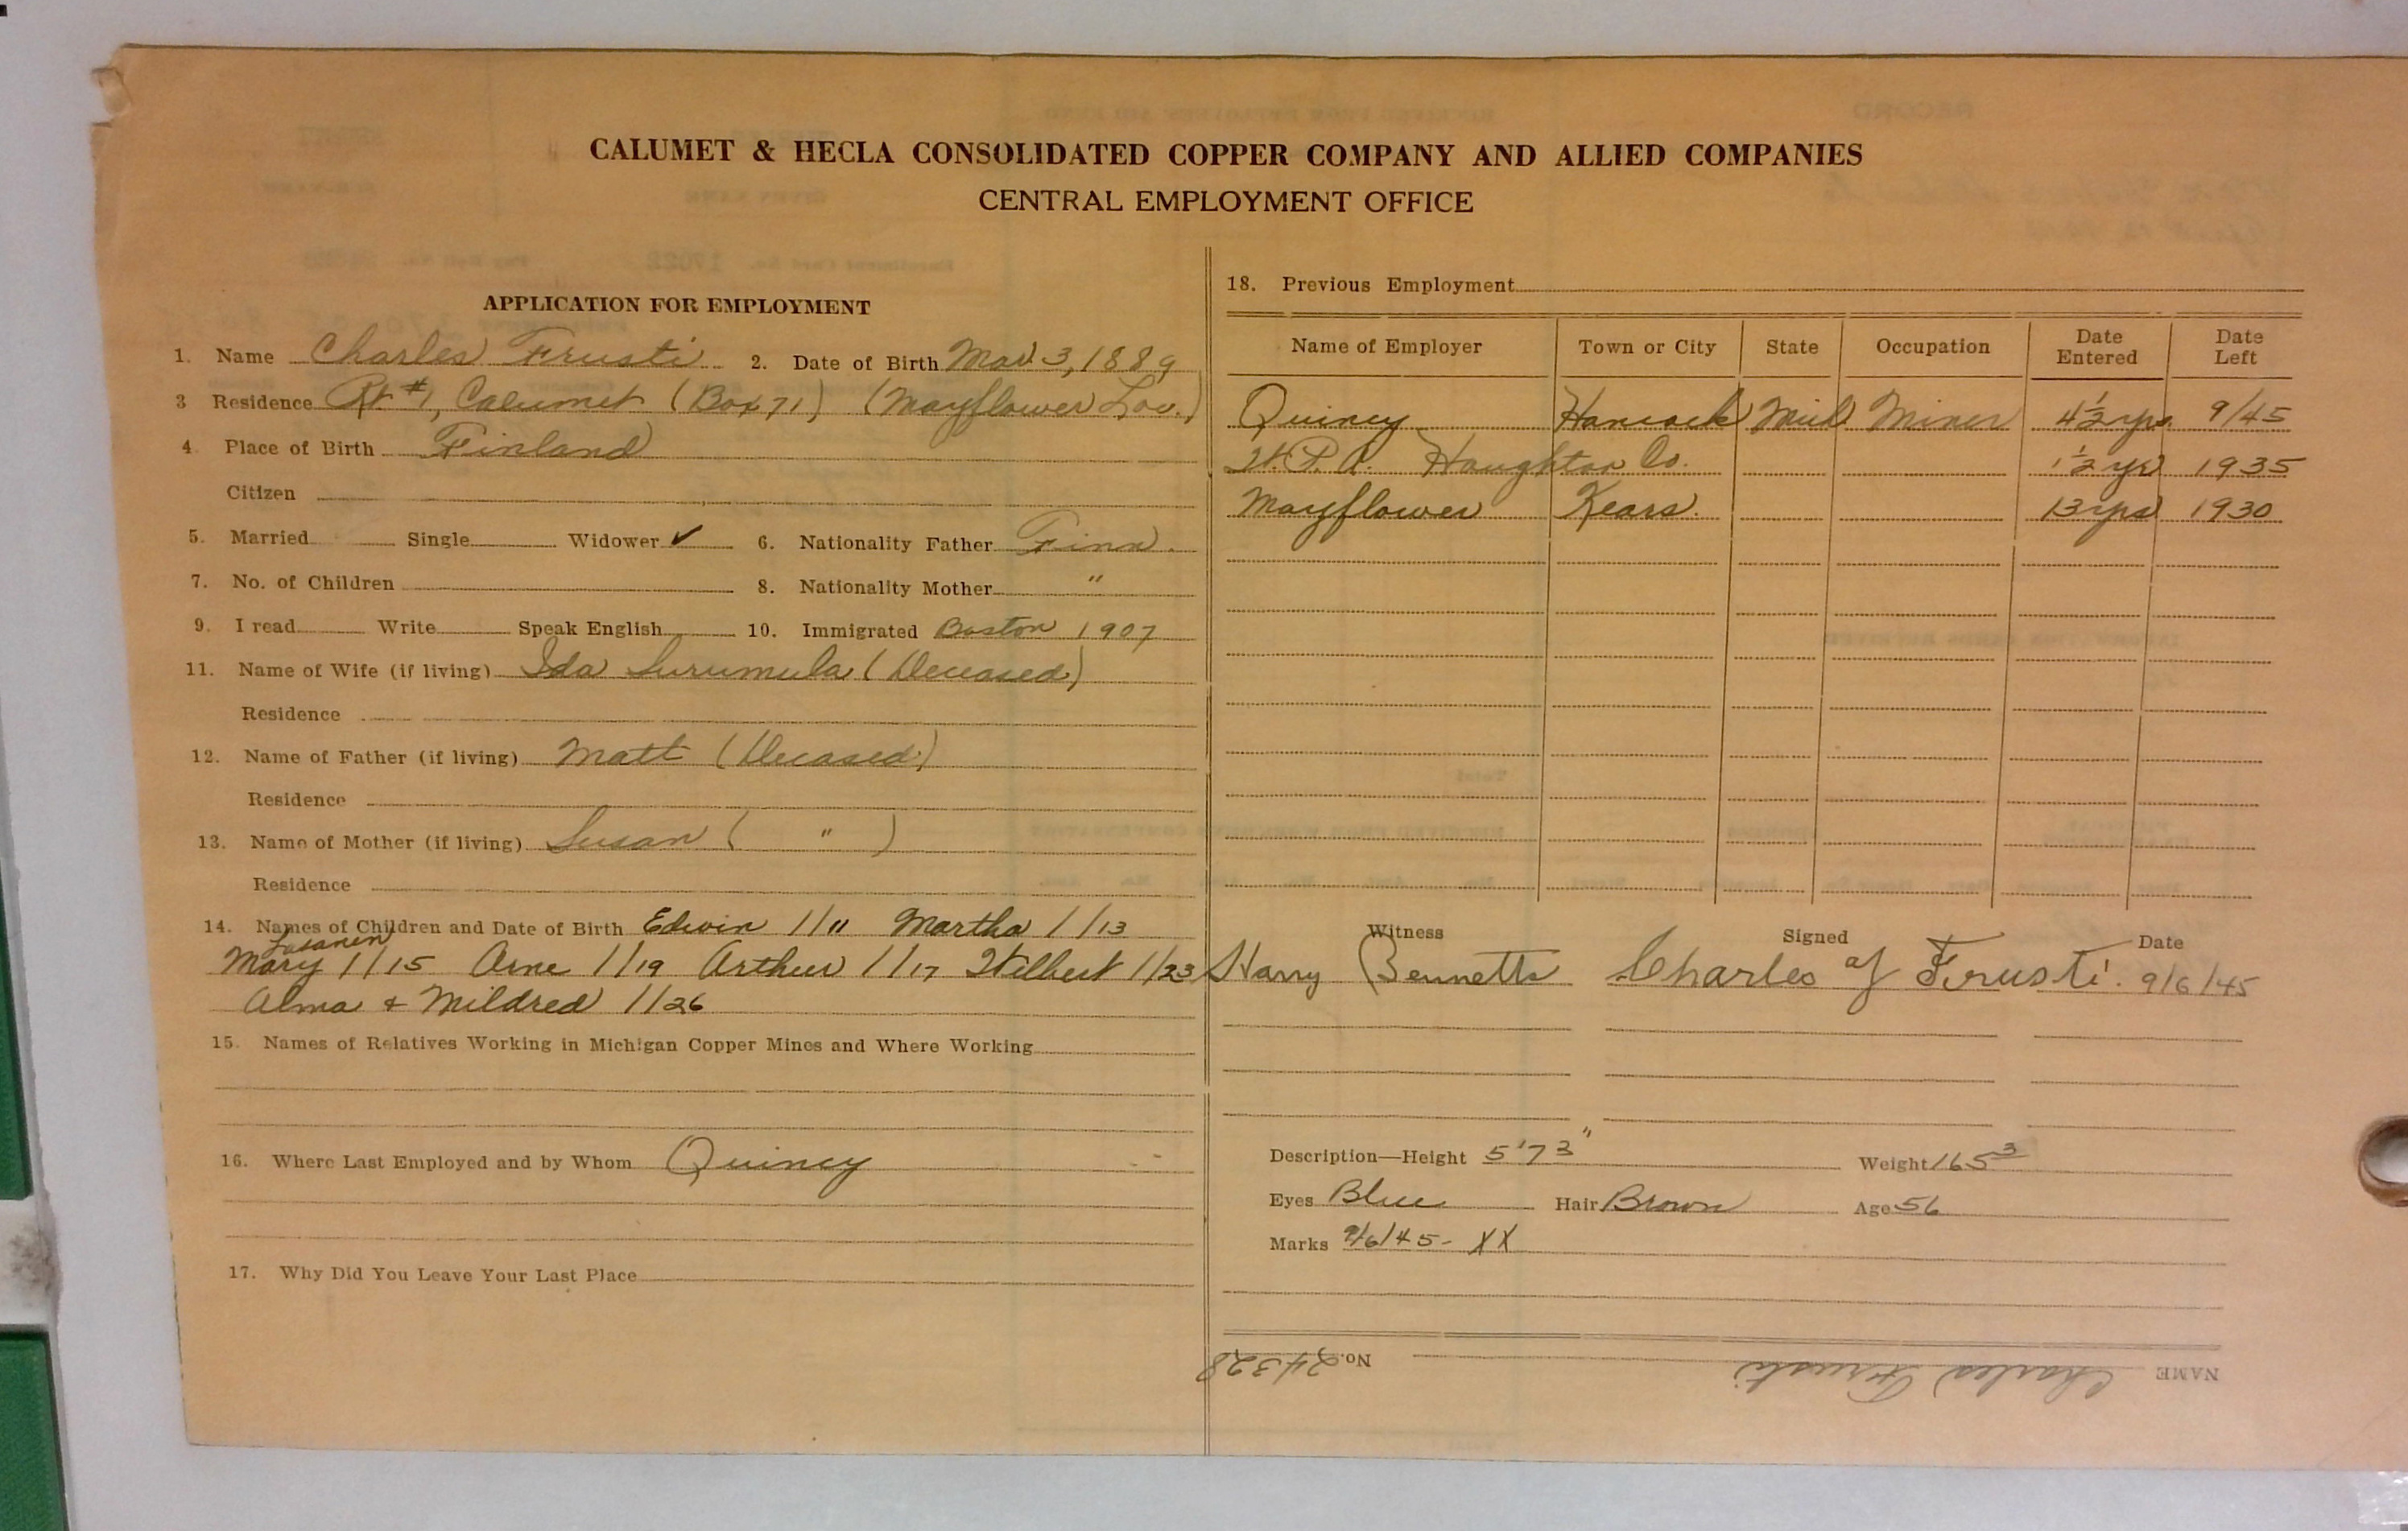 CALUMET & HECLA CONSOLIDATED COPPER COMPANY AND ALLIED COMPANIES
CENTRAL EMPLOYMENT OFFICE
APPLICATION FOR EMPLOYMENT
1. Name Charles Frusti 2. Date of Birth Mar 3, 1889
3 Residence Rt #1, Calumet (Box 71) (Mayflower Loc.)
4. Place of Birth Finland
Citizen
5. Married Single Widower ✓ 6. Nationality Father Finn.
7. No. of Children 8. Nationality Mother "
9. I read Write Speak English 10. Immigrated Boston 1907
11. Name of Wife (if living) Ida (Deceased)
Residence
12. Name of Father (if living) Matt (Deceased)
Residence
13. Name of Mother (if living) Susan ( " )
Residence
14. Names of Children and Date of Birth Edwin 1/11 Martha 1/13
Mary 1/15 Arne 1/19 Arthur 1/17 Wilbert 1/23
Alma + Mildred 1/26
15. Names of Relatives Working in Michigan Copper Mines and Where Working
16. Where Last Employed and by Whom Quincy
17. Why Did You Leave Your Last Place
18. Previous Employment
Name of Employer Town or City State Occupation Date Entered Date Left
Quincy Hancock Mich Miner 4½ yrs. 9/45
W.P.A. Houghton Co. 1½ yr 1935
Mayflower Kears. 13 yrs 1930
Witness Signed Date
Harry Bennetts Charles of Frusti. 9/6/45
Description—Height 5'7 3" Weight 165 3
Eyes Blue Hair Brown Age 56
Marks 9/6/45- XX
NAME Charles Frusti No. 24328